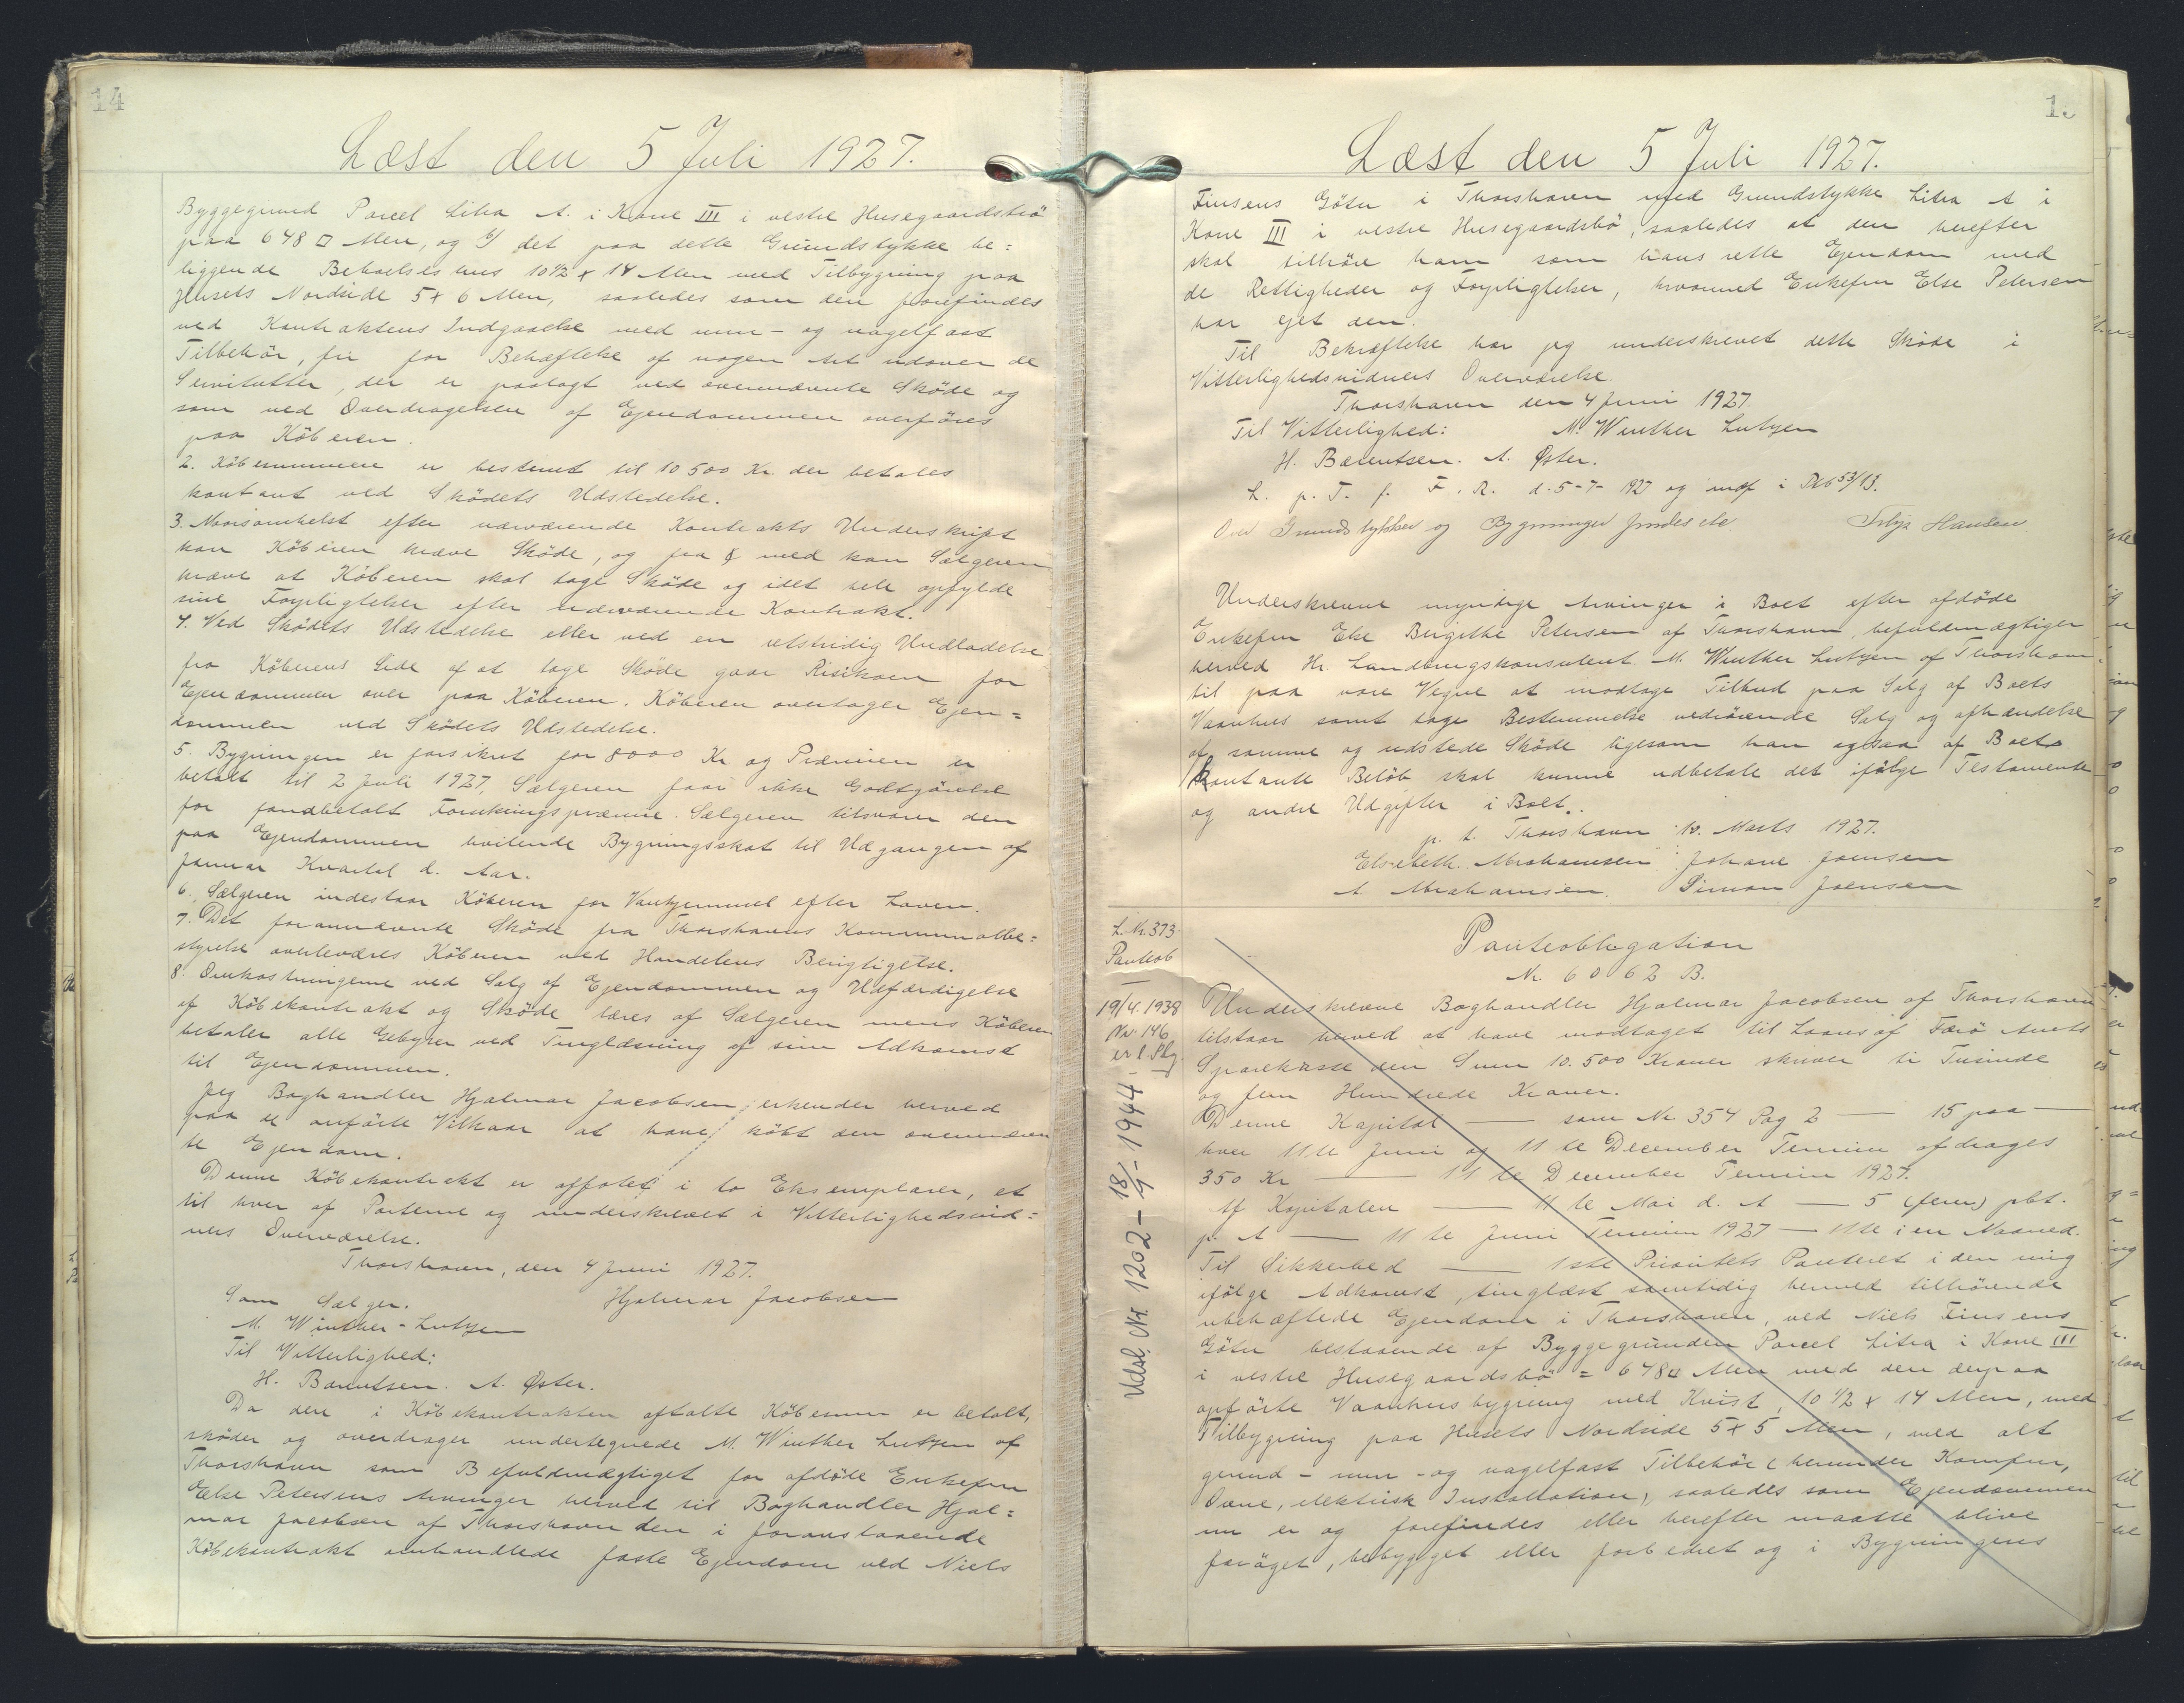 14
Læst den 5 Juli 1927.
Byggegrund Parcel Litra A. i Kane III i vestre Husegaardsbö
paa 648 □ Alen, og 2/ det paa dette Grundstykke be=
liggende Beboelseshus 10½ x 14 Alen med Tilbygning paa
Husets Nordside 5 x 6 Alen, saaledes som den forefindes
ved Kontraktens Indgaaelse med mur- og nagelfast
Tilbehör, fri for Behæftelse af nogen Art udover de
Servitutter, der er paalagt ved ovennævnte Sköde og
som ved Overdragelsen af Ejendommen overföres
paa Köberen.
2. Köbesummen er bestemt til 10500 Kr der betales
kontant ved Sködets Udstedelse.
3. Naarsomhelst efter nærværende Kontrakts Underskrift
kan Köberen kræve Sköde, og fra med kan Sælgeren
kræve at Köberen skal tage Sköde og idet hele opfylde
sine Forpligtelser efter nærværende Kontrakt.
4. Ved Sködets Udstedelse eller ved en retstridig Undladelse
fra Köberens Side af at tage Sköde gaar Risikoen for
Ejendommen over paa Köberen. Köberen overtager Ejen=
dommen ved Sködets Udstedelse.
5. Bygningen er forsikret for 8000 Kr og Præmien er
betalt til 2 Juli 1927, Sælgeren faar ikke Godtgörelse
for forudbetalt Forsikringspræmie. Sælgeren tilsvarer den
paa Ejendommen hvilende Bygningsskat til Udgangen af
Januar Kvartal d. Aar.
6. Sælgeren indestaar Köberen for Vanhjemmel efter Loven.
7. Det forannævnte Sköde fra Thorshavns Kommunalbe=
styrelse overleveres Köberen ved Handelens Berigtigelse.
8. Omkostningerne ved Salg af Ejendommen og Udfærdigelse
af Köbekontrakt og Sköde bæres af Sælgeren mens Köberen
betaler alle Gebyrer ved Tinglæsning af sin Adkomst
til Ejendommen.
Jeg Boghandler Hjalmar Jacobsen, erkender herved
paa de anförte Vilkaar at have köbt den ovennævn
te Ejendom.
Denne Köbekontrakt er affattet i to Eksemplarer, et
til hver af Parterne og underskrevet i Vitterlighedsvid=
ners Overværelse.
Thorshavn, den 4 Juni 1927.
Som Sælger. Hjalmar Jacobsen
M. Winther-Lutzen
Til Vitterlighed:
H. Bærentsen. A. Øster.
Da den i Köbekontrakten aftalte Köbesum er betalt,
sköder og overdrager undertegnede M. Winther Lutzen af
Thorshavn som Befuldmægtiget for afdöde Enkefru
Else Petersens Arvinger herved til Boghandler Hjal=
mar Jacobsen af Thorshavn den i foranstaaende
Köbekontrakt omhandlede faste Ejendom ved Niels
15
Læst den 5 Juli 1927.
Finsens Göta i Thorshavn med Grundstykke Litra A i
Kane III i vestre Husegaardsbö, saaledes at den herefter
skal tilhöre ham som hans rette Ejendom med
de Rettigheder og Forpligtelser, hvormed Enkefru Else Petersen
har ejet den.
Til Bekræftelse har jeg underskrevet dette Sköde i
Vitterlighedsvidners Overværelse.
Thorshavn den 4 Juni 1927.
Til Vitterlighed: M. Winther Lutzen
H. Bærentsen. A. Øster.
L. p. T. f. F. R. d. 5-7-1927 og indf i Pkb 53/13.
Over Grundstykker og Bygninger findes ele Hansen

Underskrevne myndige Arvinger i Boet efter afdöde
Enkefru Else Birgithe Petersen af Thorshavn, befuldmægtiger
herved Hr. Landbrugskonsulent M. Winther Lutzen af Thorshavn
til paa vore Vegne at modtage Tilbud paa Salg af Boets
Vaanhus samt tage Bestemmelse vedrörende Salg og afhændelse
af samme og udstede Sköde ligesom han ogsaa af Boets
kontante Belöb skal kunne udbetale det ifölge Testamente
og andre Udgifter i Boet.
p. t. Thorshavn 10. Marts 1927.
Elsebeth Abrahamsen Johane Joensen
A. Abrahamsen. Simon Joensen
L. Nr. 373
Panteob
19/4. 1938
Nr. 146
er l. Slg.
Udsl. Nr. 1202 - 18/4 - 1944 -
Panteobligation
Nr. 6062 B.
Underskrevne Boghandler Hjalmar Jacobsen af Thorshavn
tilstaar herved at have modtaget til Laans af Færö Amts
Sparekasse den Sum 10.500 Kroner skriver ti Tusinde
og fem Hundrede Kroner.
Denne Kapital — som Nr 354 Pag 2 — 15 paa —
hver 11te Juni og 11te December Termin afdrages
350 Kr — 11te December Termin 1927.
Af Kapitalen — 11te Mai d. A — 5 (fem) pCt.
p. A — 11te Juni Termin 1927 — 11te i en Maaned.
Til Sikkerhed — 1ste Prioritets Panteret i den mig
ifölge Adkomst, tinglæst samtidig herved tilhörende
ubehæftede Ejendom i Thorshavn, ved Niels Finsens
Göta bestaaende af Byggegrunden Parcel Litra i Kane III
i vestre Husegaardsbö = 648□ Alen med den derpaa
opförte Vaanhusbygning med Kvist, 10 1/2 x 14 Alen, med
Tilbygning paa Husets Nordside 5 x 5 Alen, med alt
grund - mur - og nagelfast Tilbehör (herunder Komfur,
Ovne, elektrisk Installation), saaledes som Ejendommen
nu er og forefindes eller herefter maatte blive
foröget, bebygget eller forbedret og i Bygningens